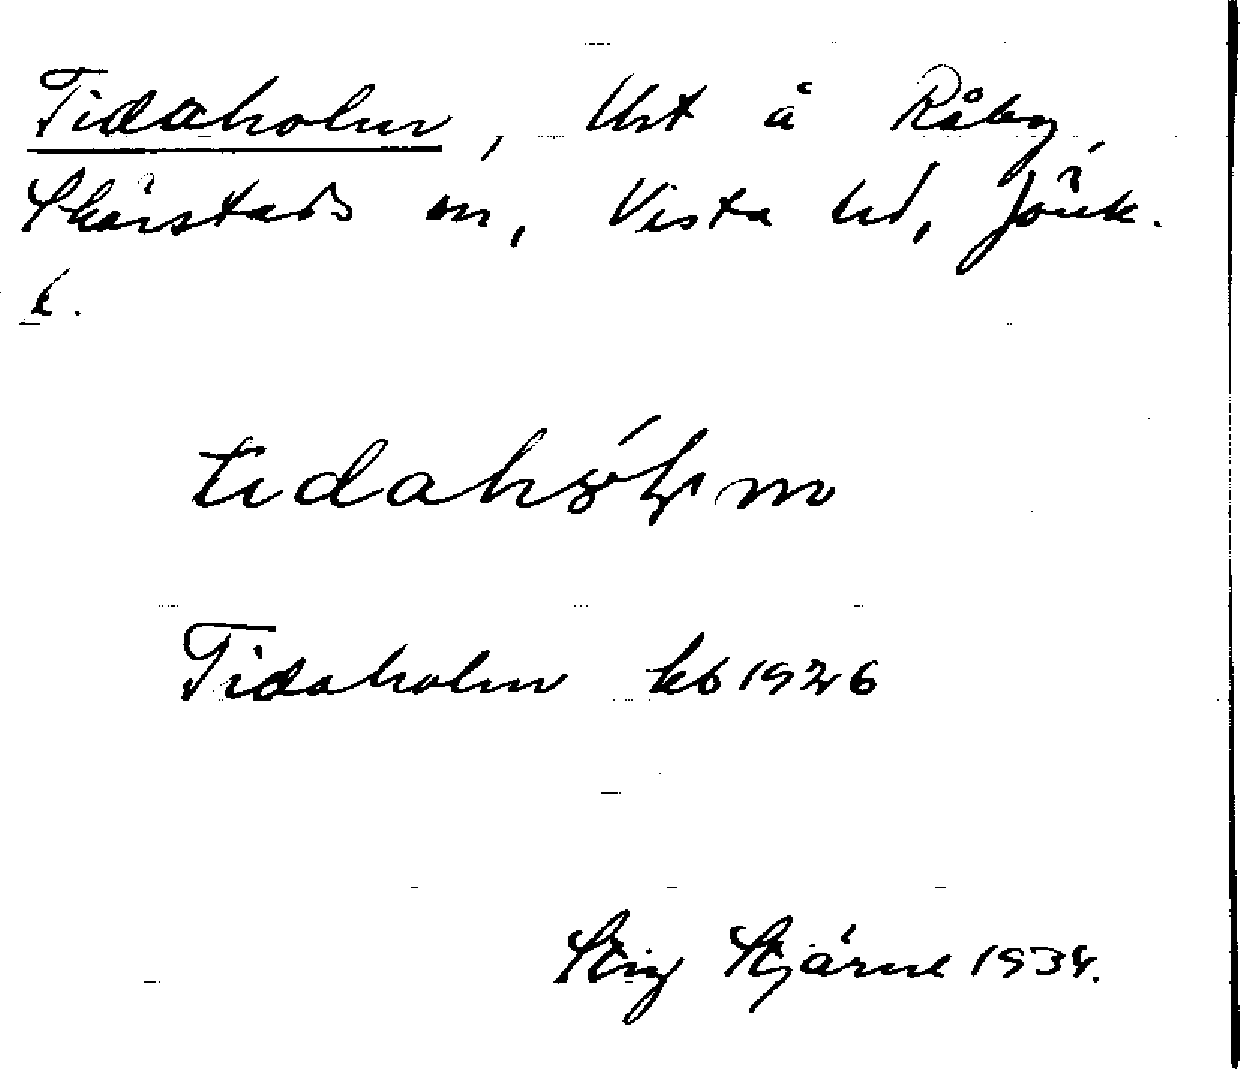 Tidaholm, Urt å Råby,
Skärstads sn, Vista hd, Jönk.
l.
tidahó̤ḷm
Tidaholm kb 1926
Stig Stjärne 1934.